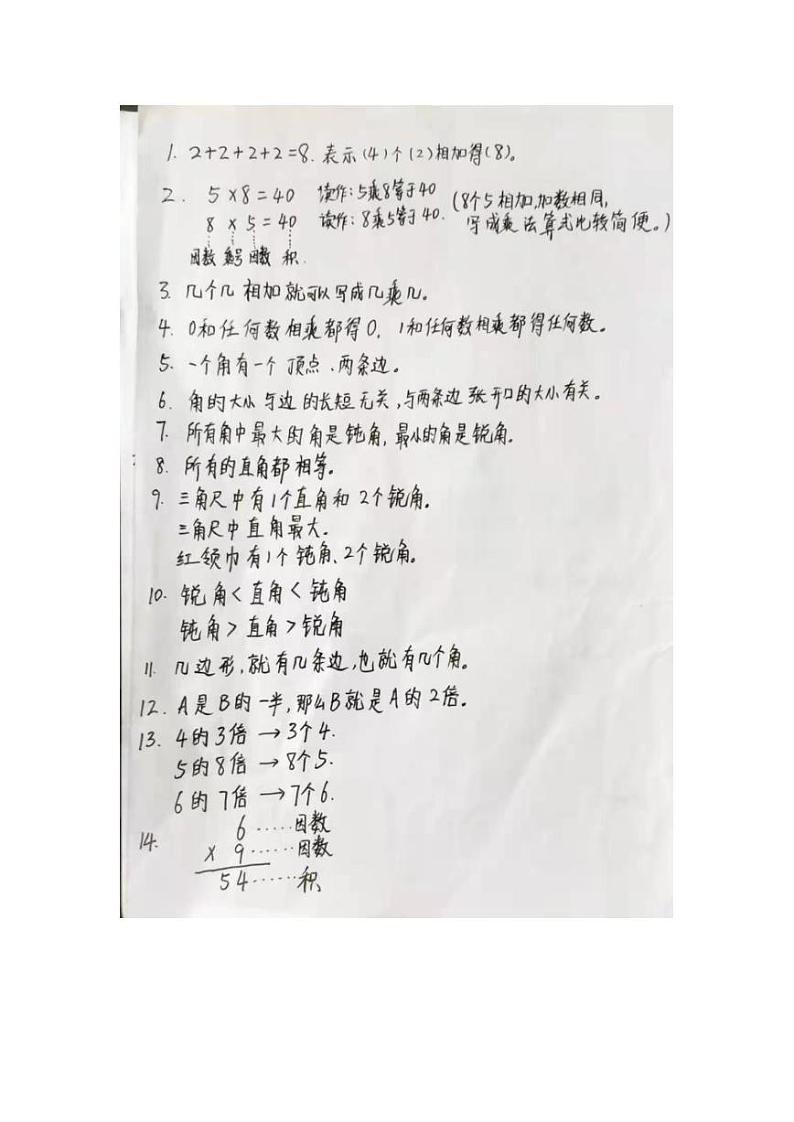 1. 2+2+2+2=8. 表示(4)个(2)相加得(8)。
2. 5×8=40 读作:5乘8等于40 (8个5相加,加数相同,
8×5=40 读作:8乘5等于40. 写成乘法算式比较简便。)
因数 乘号 因数 积.
3. 几个几相加就可以写成几乘几。
4. 0和任何数相乘都得0, 1和任何数相乘都得任何数。
5. 一个角有一个顶点、两条边。
6. 角的大小与边的长短无关,与两条边张开口的大小有关。
7. 所有角中最大的角是钝角,最小的角是锐角.
8. 所有的直角都相等。
9. 三角尺中有1个直角和2个锐角.
三角尺中直角最大.
红领巾有1个钝角、2个锐角。
10. 锐角<直角<钝角
钝角>直角>锐角
11. 几边形,就有几条边,也就有几个角。
12. A是B的一半,那么B就是A的2倍。
13. 4的3倍→3个4.
5的8倍→8个5.
6的7倍→7个6.
14. 6……因数
× 9……因数
54……积